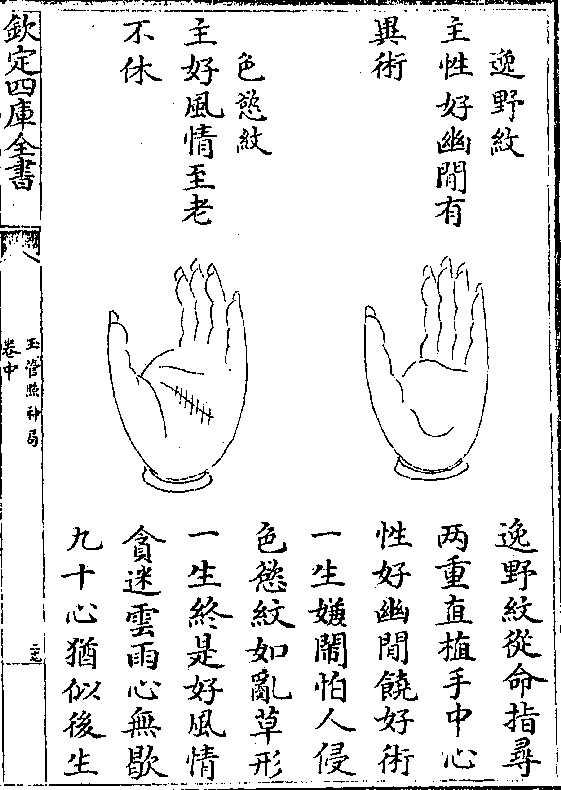 逸野紋
主性好幽閒有
異術
色慾紋
主好風情至老
不休
逸野紋從命指尋
两重直植手中心
性好幽閒饒好術
一生嫌鬧怕人侵
色慾紋如亂草形
一生終是好風情
貪迷雲雨心無歇
九十心猶似後生
欽定四庫全書
玉管照神局
卷中